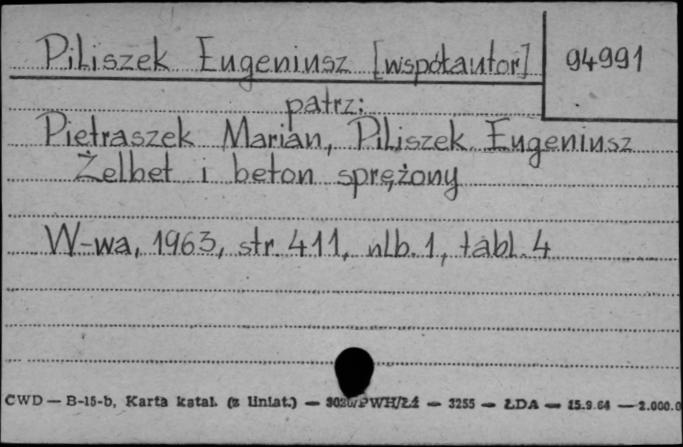 Piliszek Eugeniusz [współautor] 94991
patrz:
Pietraszek Marian, Piliszek Eugeniusz
Żelbet i beton sprężony
W-wa, 1963, str. 411, nlb. 1, tabl. 4
CWD — B-15-b, Karta katal. (z liniat.) — 3020/PWH/Łł — 3255 — ŁDA — 15.9.64 — 2.000.0